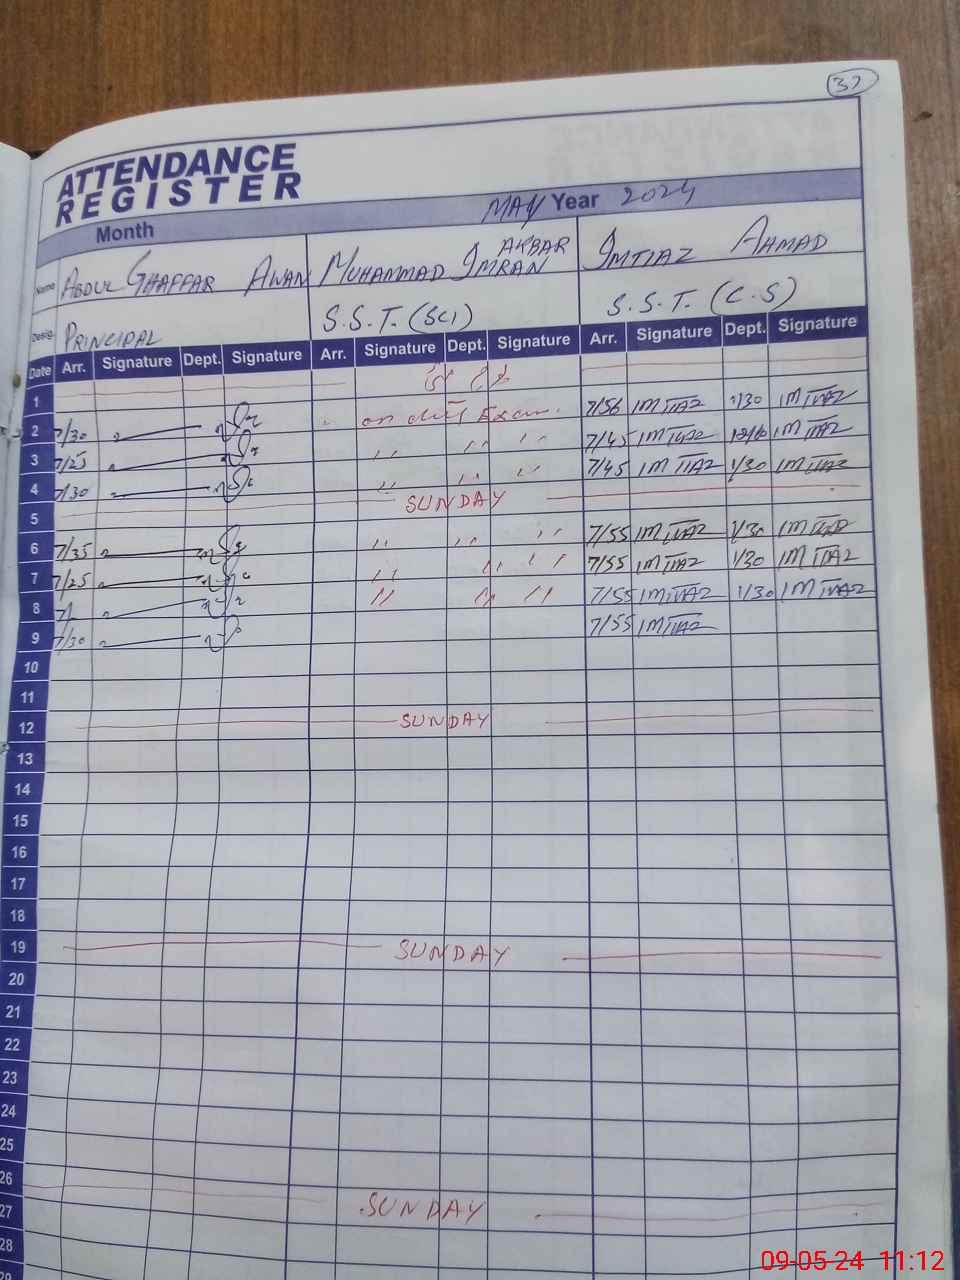 37
ATTENDANCE
REGISTER
Month MAY Year 2024
Name ABDUL GHAFFAR AWAN MUHAMMAD IMRAN AKBAR IMTIAZ AHMAD
Desig. PRINCIPAL S.S.T. (SCI) S.S.T. (C.S)
Date Arr. Signature Dept. Signature Arr. Signature Dept. Signature Arr. Signature Dept. Signature
1
2 7/30 on duty Exam. 7/56 IMTIAZ 1/30 IMTIAZ
3 7/25 " " " 7/45 IMTIAZ IMTIAZ
4 7/30 " " " 7/45 IMTIAZ 1/30 IMTIAZ
5 SUNDAY
6 7/35 " " " 7/55 IMTIAZ 1/30 IMTIAZ
7 7/25 " " " 7/55 IMTIAZ 1/30 IMTIAZ
8 " " " 7/55 IMTIAZ 1/30 IMTIAZ
9 7/30 7/55 IMTIAZ
10
11
12 SUNDAY
13
14
15
16
17
18
19 SUNDAY
20
21
22
23
24
25
26
27 SUNDAY
28
29
09-05-24 11:12